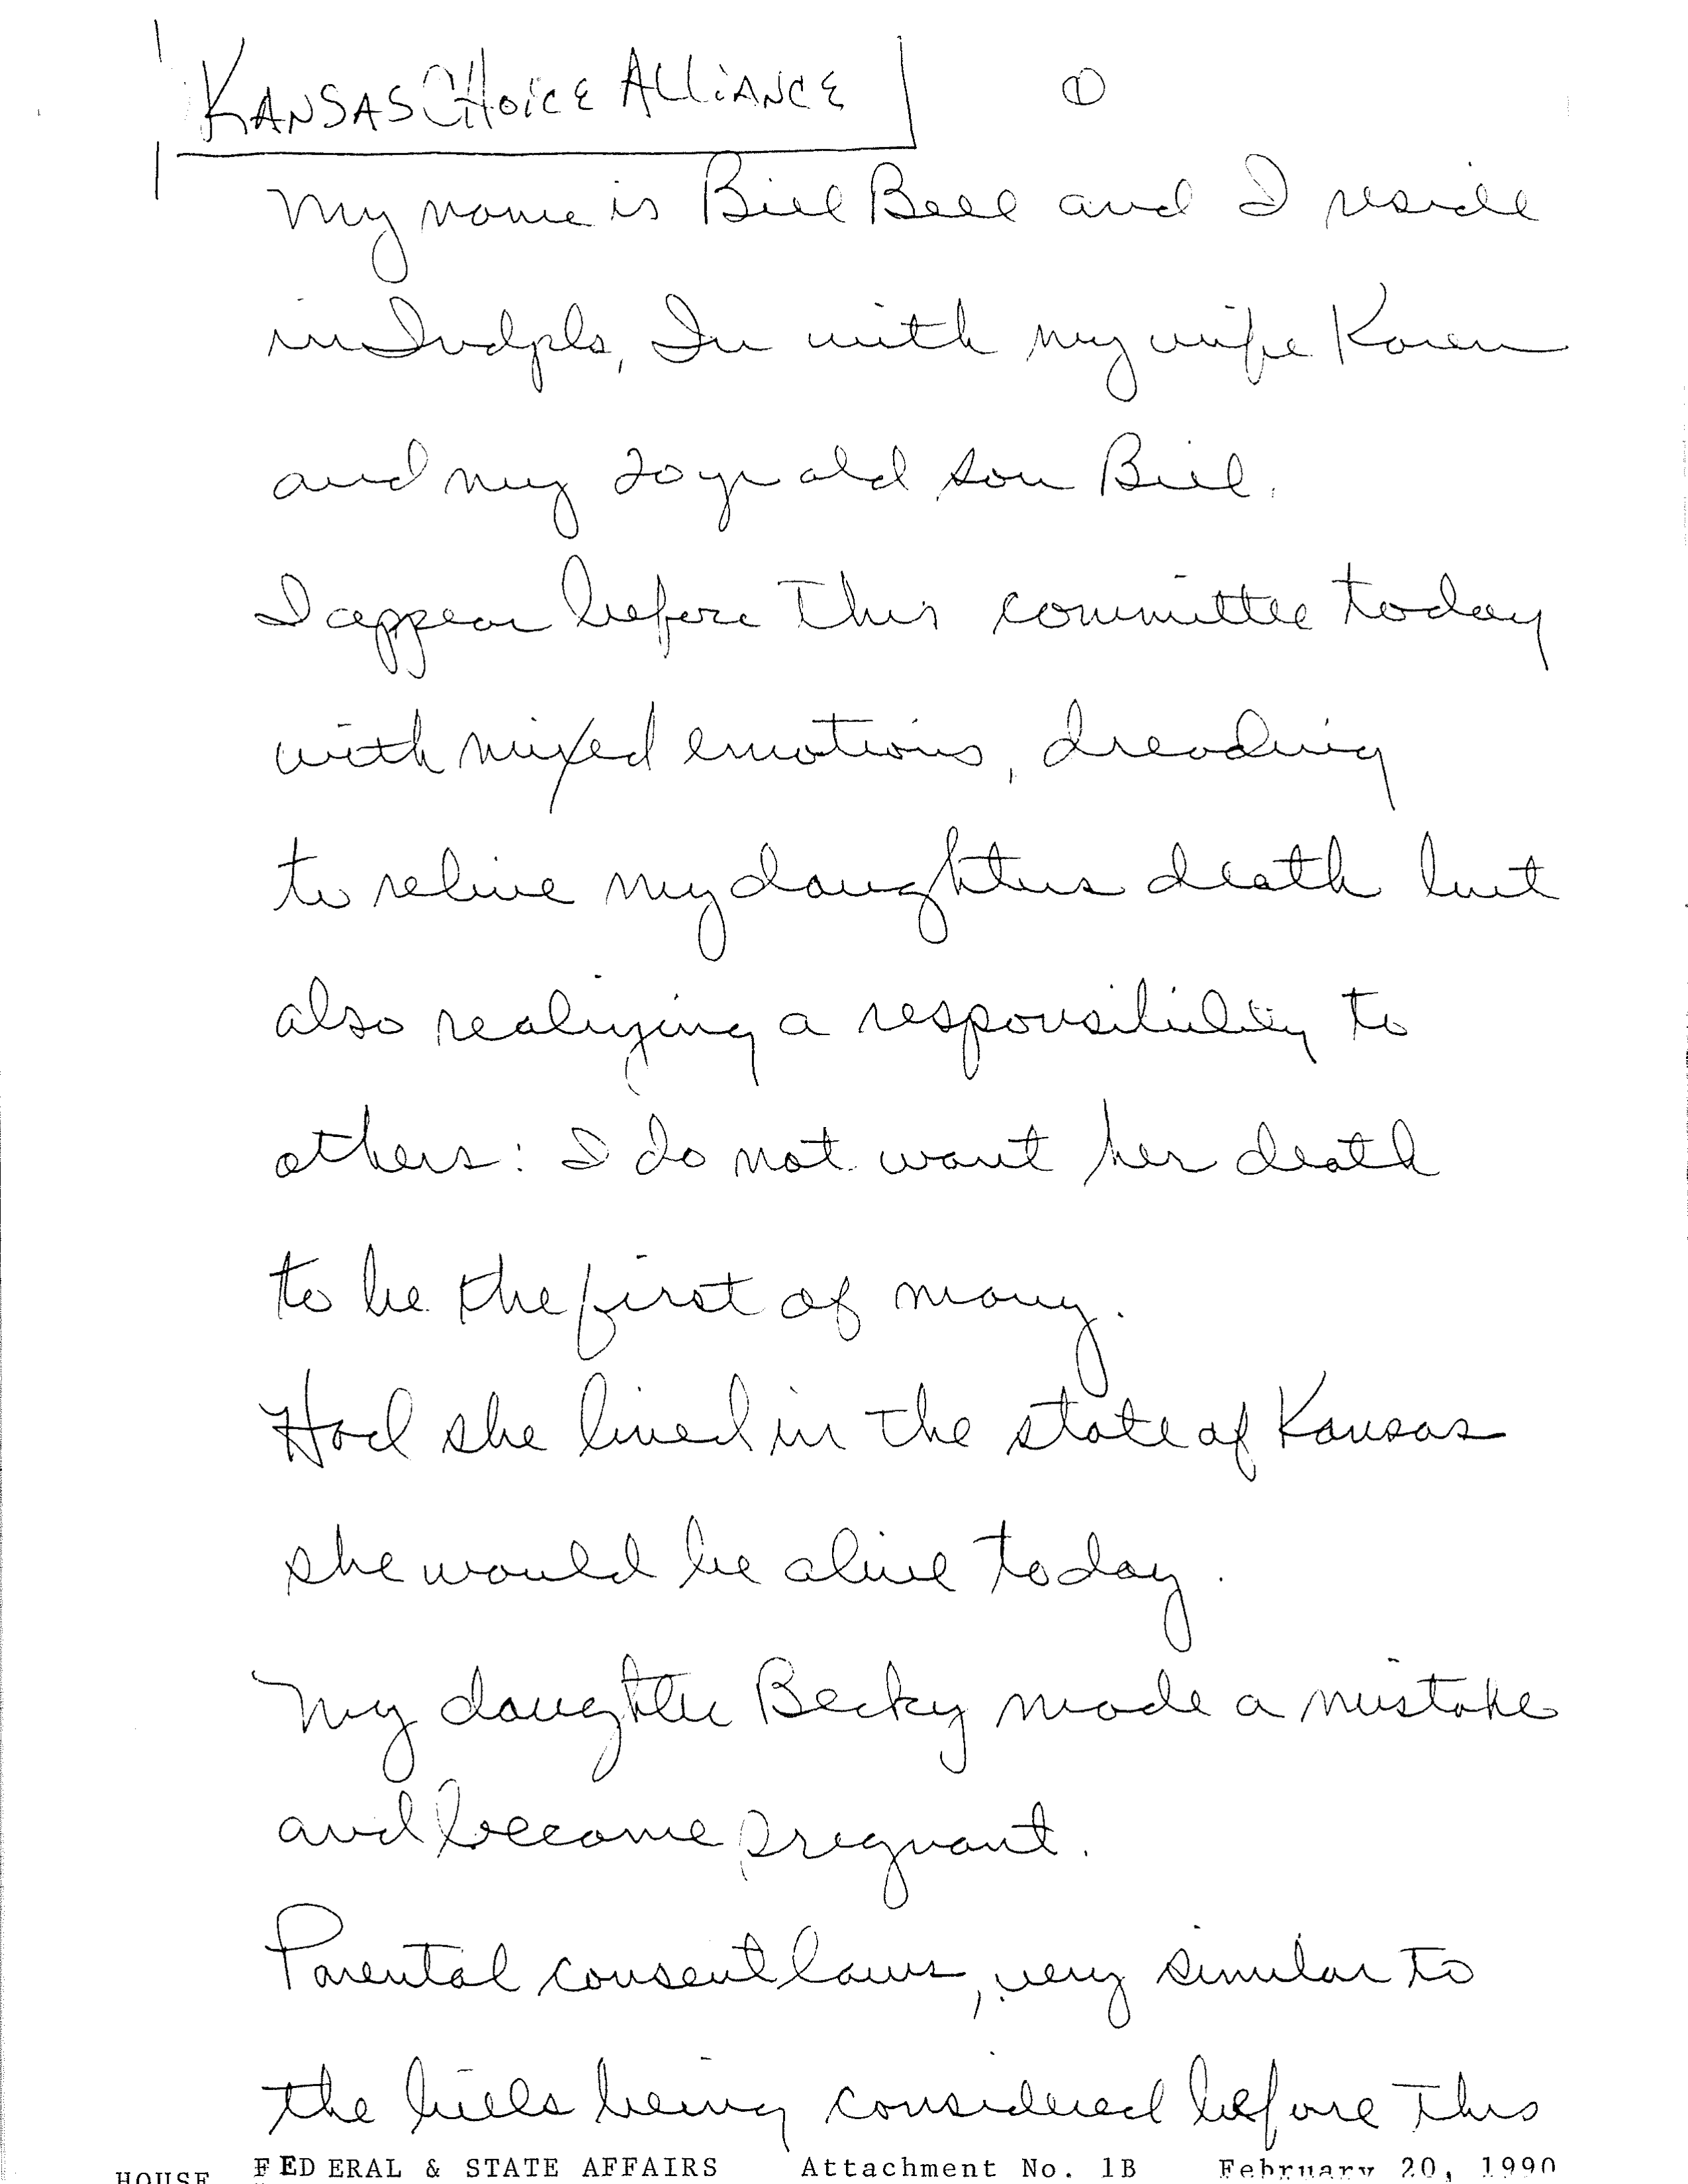 KANSAS CHOICE ALLIANCE ①
My name is Bill Bell and I reside
in Indpls, In with my wife Karen
and my 20 yr old son Bill.
I appear before this committee today
with mixed emotions, dreading
to relive my daughters death but
also realizing a responsibility to
others: I do not want her death
to be the first of many.
Had she lived in the state of Kansas
she would be alive today.
My daughter Becky made a mistake
and became pregnant.
Parental consent laws, very similar to
the bills being considered before this
HOUSE FEDERAL & STATE AFFAIRS Attachment No. 1B February 20, 1990